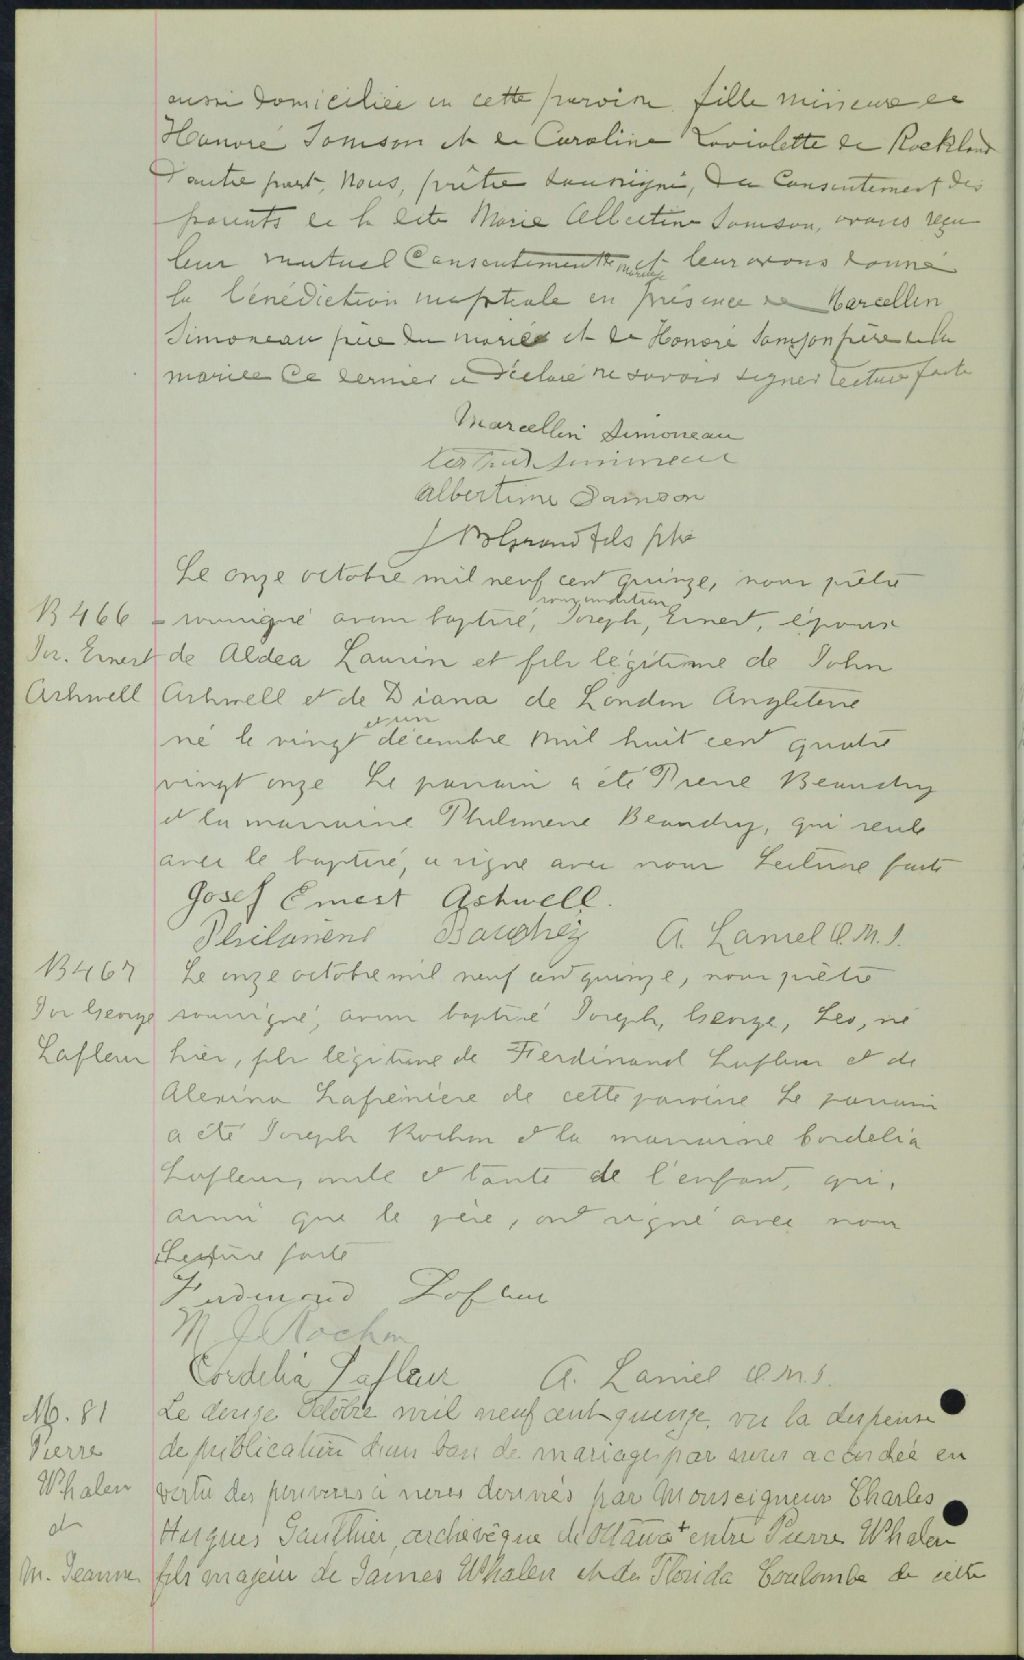 aussi domiciliée en cette paroisse fille mineure de
Honoré Samson et de Caroline Laviolette de Rockland
d'autre part, Nous, prêtre soussigné, du Consentement des
parents de la dite Marie Albertine Samson, avons reçu
leur mutuel Consentement de mariage et leur avons donné
la bénédiction nuptiale en présence de Marcellin
Simoneau père du marié et de Honoré Samson père de la
mariée Ce dernier a déclaré ne savoir signer Lecture faite
Marcellin Simoneau
Simoneau
Albertine Samson
fils ptre
Le onze octobre mil neuf cent quinze, nous prêtre
B 466 - soussigné avons baptisé, sous condition, Joseph, Ernest, époux
Jos. Ernest de Aldea Laurin et fils légitime de John
Ashwell Ashwell et de Diana de London Angleterre
né le vingt et un décembre mil huit cent quatre
vingt onze Le parrain a été Pierre Beaudry
et la marraine Philomene Beaudry, qui seule
avec le baptisé, a signé avec nous Lecture faite
Josef Ernest Ashwell.
Philomène A. Laniel O.M.I.
B467 Le onze octobre mil neuf cent quinze, nous prêtre
Jos George soussigné, avons baptisé Joseph, George, Leo, né
Lafleur hier, fils légitime de Ferdinand Lafleur et de
Alexina Lafrenière de cette paroisse Le parrain
a été Joseph Rochon et la marraine Cordelia
Lafleur, oncle et tante de l'enfant, qui,
ainsi que le père, ont signé avec nous
Lecture faite
Ferdinand Lafleur
M J Rochon
Cordelia Lafleur A. Laniel O.M.I.
M. 81 Le douze Octobre mil neuf cent quinze, vu la dispense
Pierre de publication d'un ban de mariage par nous accordée en
Whalen vertu des pouvoirs à nous donnés par Monseigneur Charles
et Hugues Gauthier, archevêque de Ottawa + entre Pierre Whalen
M. Jeanne fils majeur de James Whalen et de Florida Coulombe de cette